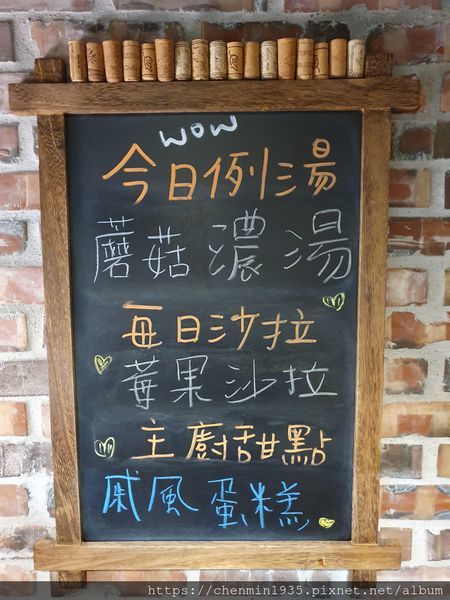 wow
今日例湯
蘑菇濃湯
每日沙拉
莓果沙拉
主廚甜點
戚風蛋糕
https://chenmin1935.pixnet.net/album